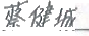 蔡健城